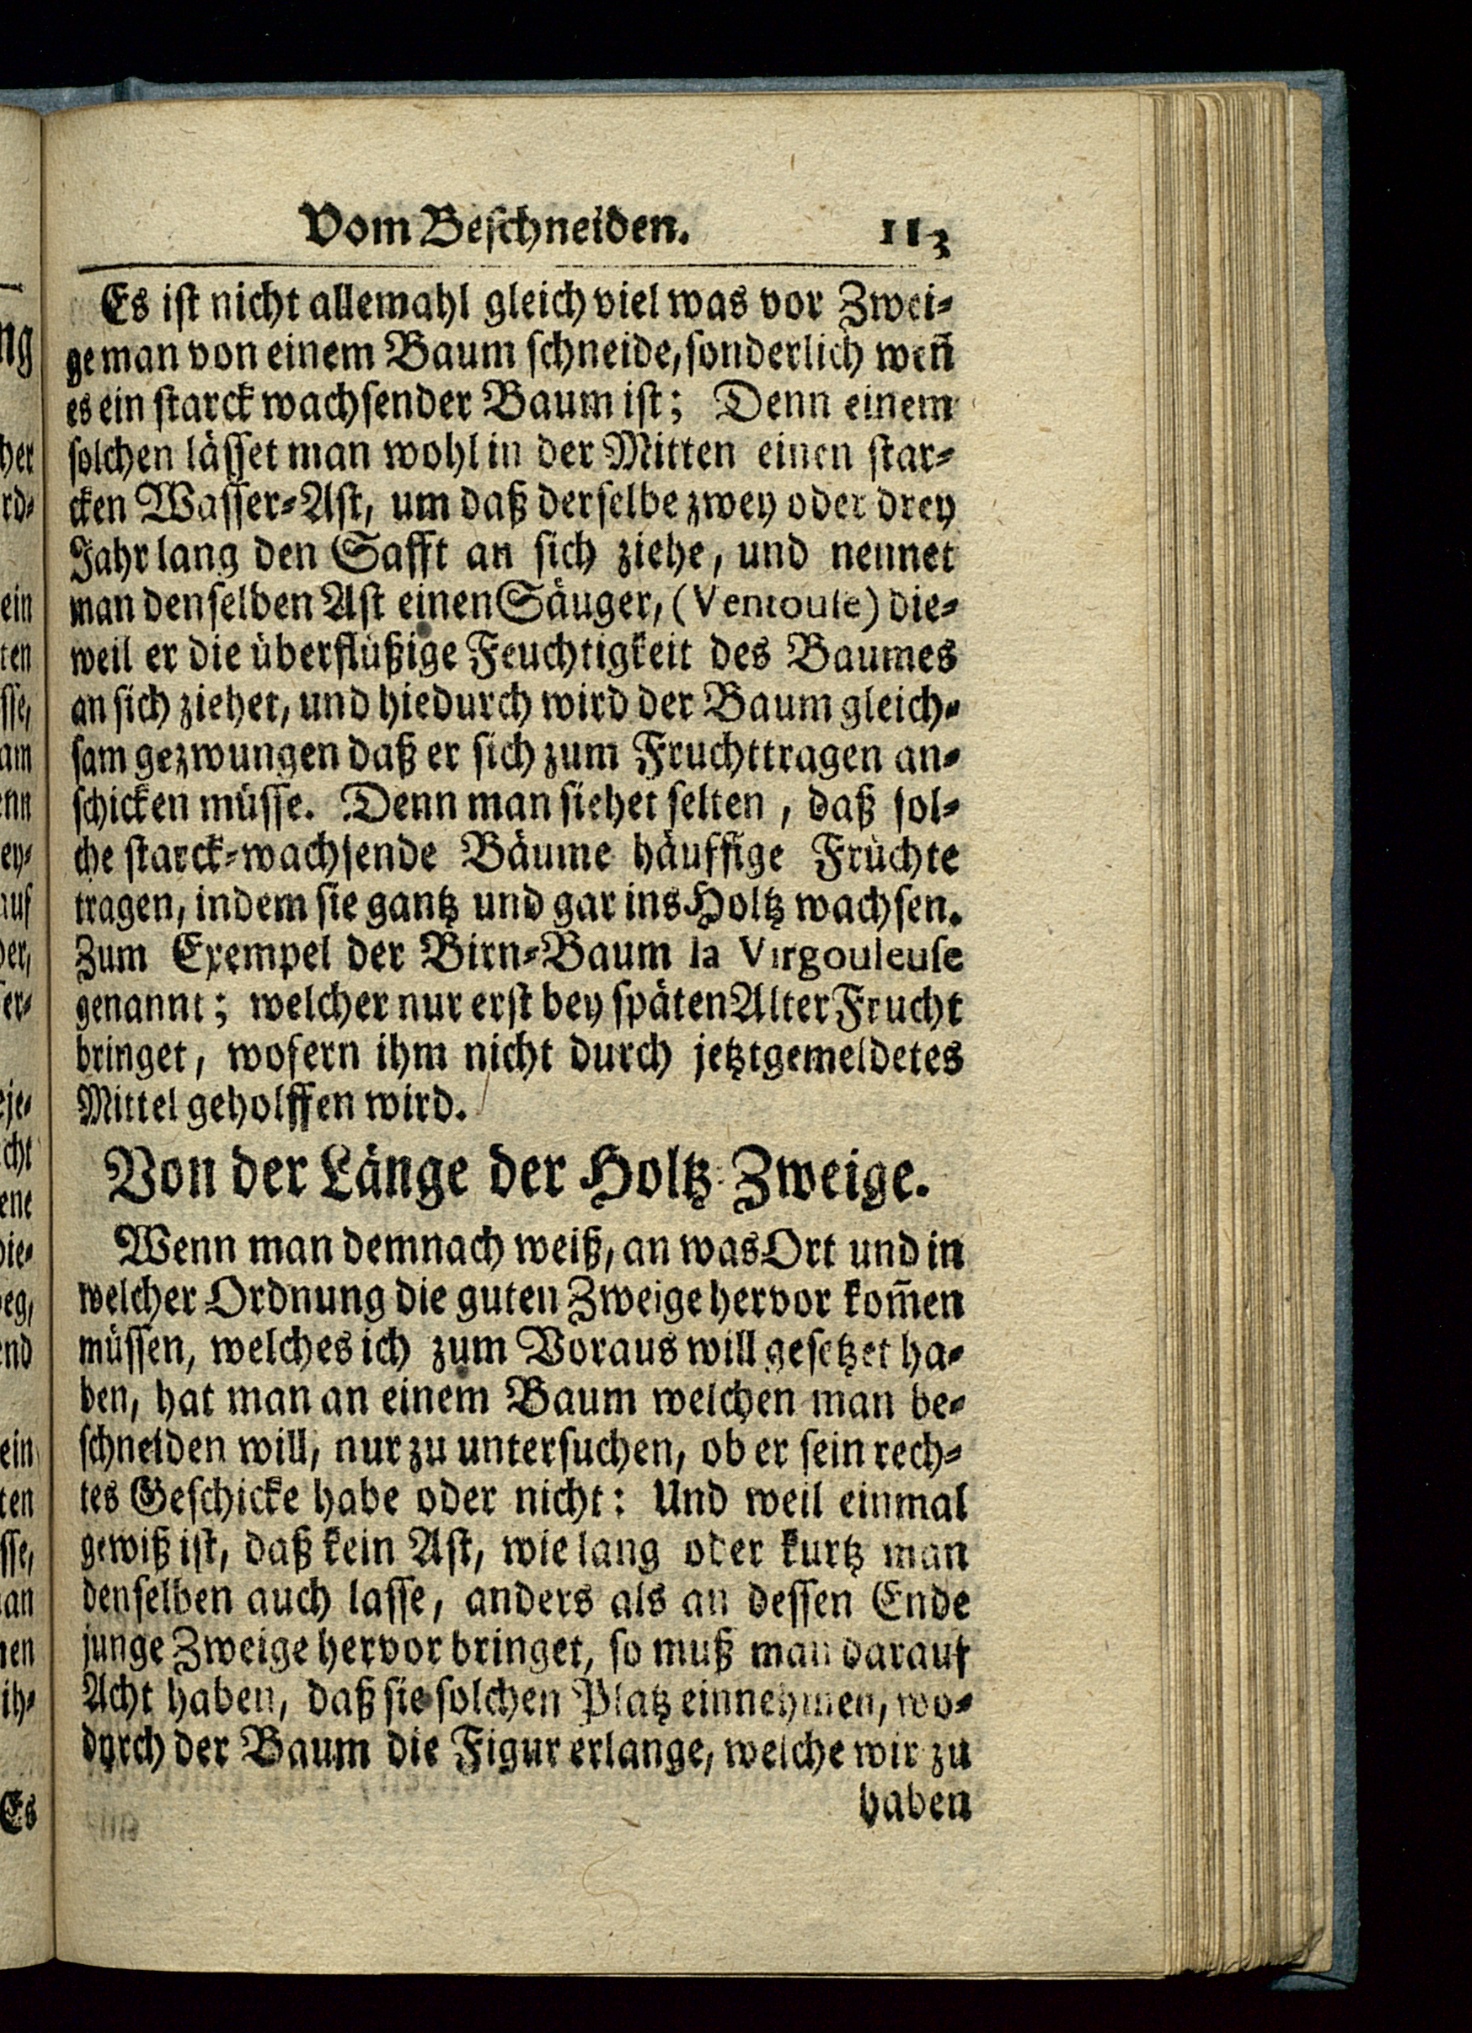 Vom Beschneiden. 113
Es ist nicht allemahl gleich viel was vor Zwei-
ge man von einem Baum schneide, sonderlich weñ
es ein starck wachsender Baum ist; Denn einem
solchen lässet man wohl in der Mitten einen star-
cken Wasser-Ast, um daß derselbe zwey oder drey
Jahr lang den Safft an sich ziehe, und nennet
man denselben Ast einen Säuger, (Ventouse) die-
weil er die überflüßige Feuchtigkeit des Baumes
an sich ziehet, und hiedurch wird der Baum gleich-
sam gezwungen daß er sich zum Fruchttragen an-
schicken müsse. Denn man siehet selten, daß sol-
che starck-wachsende Bäume häuffige Früchte
tragen, indem sie gantz und gar ins Holtz wachsen.
Zum Exempel der Birn-Baum la Virgouleuse
genannt; welcher nur erst bey späten Alter Frucht
bringet, wofern ihm nicht durch jetztgemeldetes
Mittel geholffen wird.
Von der Länge der Holtz-Zweige.
Wenn man demnach weiß, an was Ort und in
welcher Ordnung die guten Zweige hervor kom̃en
müssen, welches ich zum Voraus will gesetzet ha-
ben, hat man an einem Baum welchen man be-
schneiden will, nur zu untersuchen, ob er sein rech-
tes Geschicke habe oder nicht: Und weil einmal
gewiß ist, daß kein Ast, wie lang oder kurtz man
denselben auch lasse, anders als an dessen Ende
junge Zweige hervor bringet, so muß man darauf
Acht haben, daß sie solchen Platz einnehmen, wo-
durch der Baum die Figur erlange, welche wir zu
haben